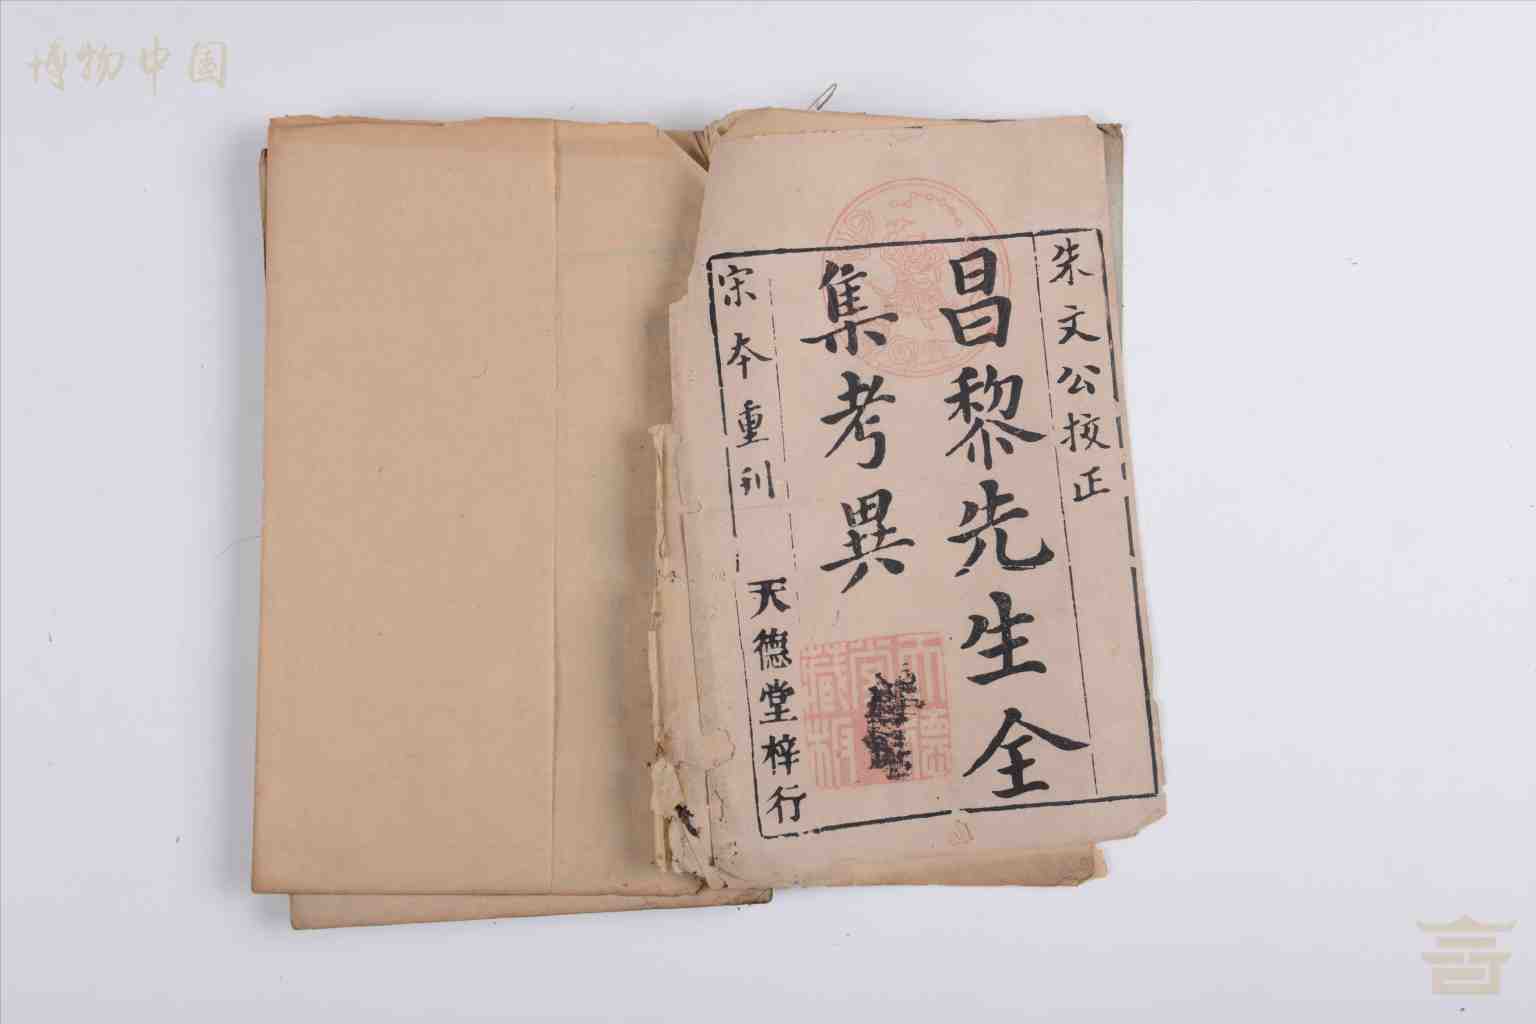 博物中国
朱文公挍正
昌黎先生全
集考異
宋本重刊 天德堂梓行
天德
堂
藏板